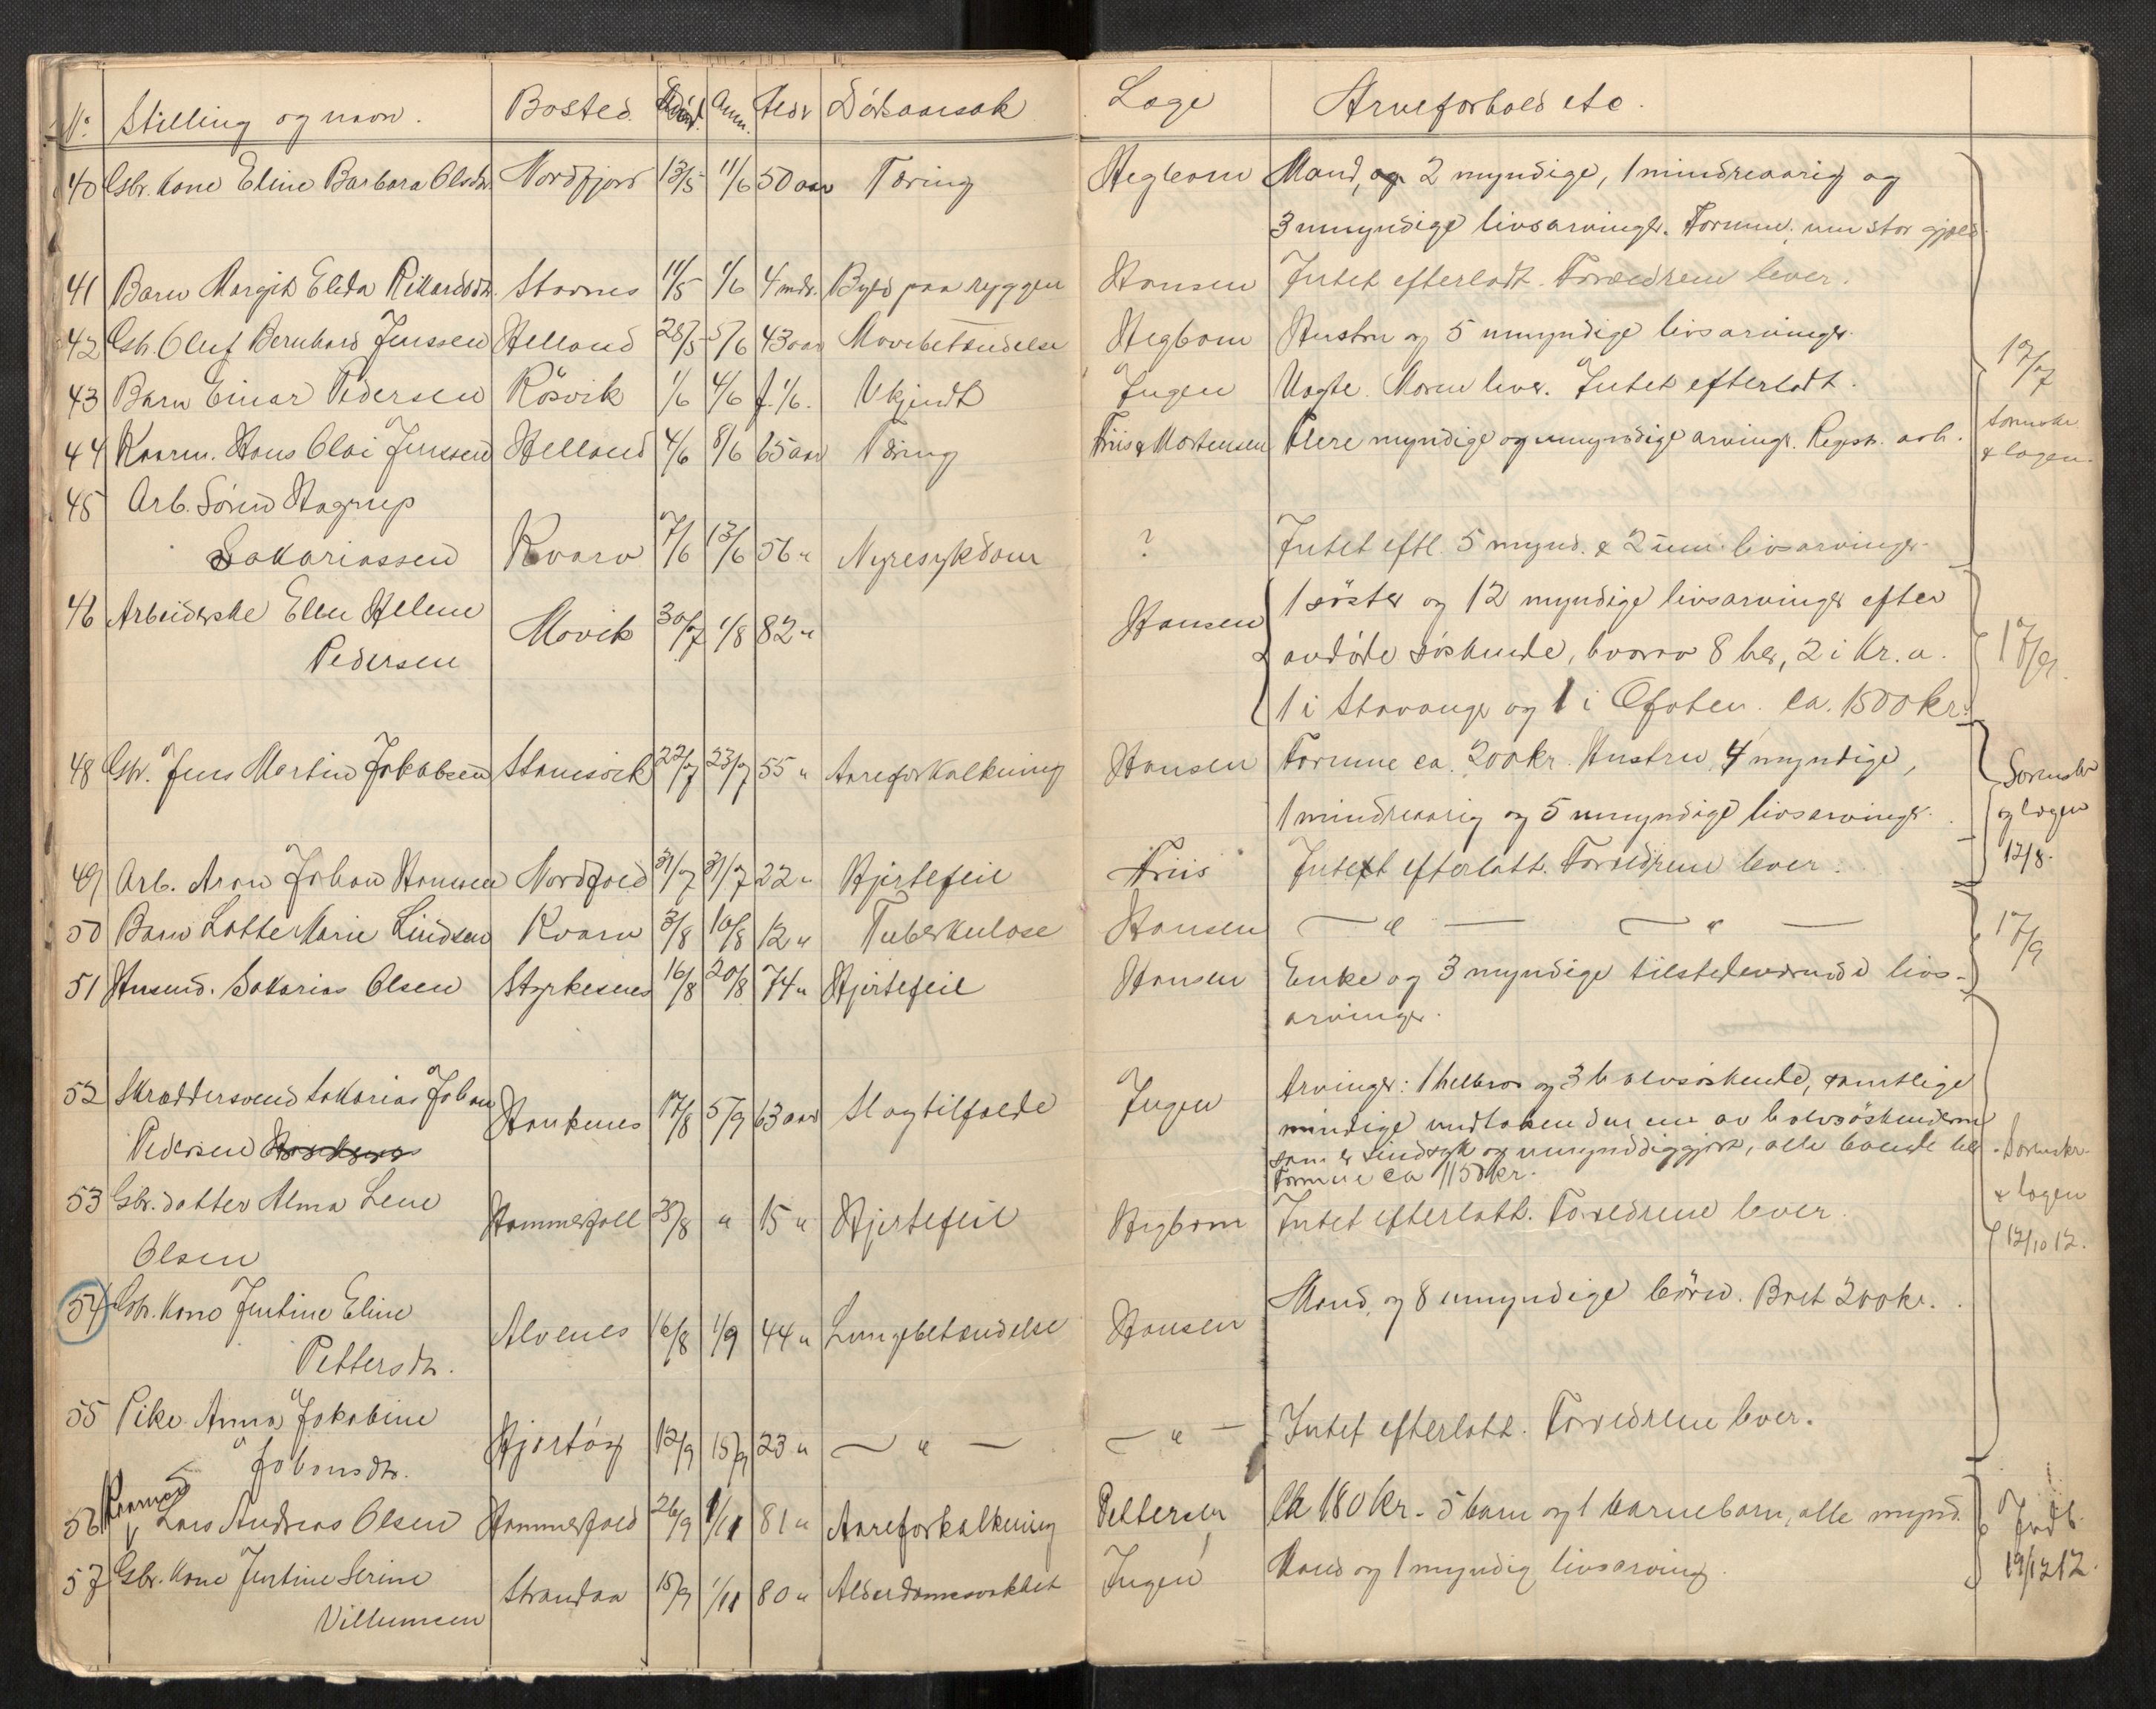 No Stilling og navn. Bosted. Död. Anm. Alder Dödsaarsak Læge Arveforhold etc.
40 Gbr. kone Eline Barbara Olsdtr. Nordfjord 13/5 11/6 50 aar Tæring Hegbom Mand, og 2 myndige, 1 mindreaarig og
3 umyndige livsarvinger. Formue, men stor gjæld.
41 Barn Margit Elida Rikardsdtr. Stavnes 11/5 1/6 4 mdr. Byld paa ryggen Hansen Intet efterladt. Forældrene lever.
42 Gbr. Oluf Bernhard Jenssen Helland 28/5 5/6 43 aar Mavebetændelse Hegbom Hustru og 5 umyndige livsarvinger.
43 Barn Einar Pedersen Rösvik 1/6 4/6 f. 1/6. Ukjendt Ingen Uægte. Moren lever. Intet efterladt. 17/7
44 Kaarm. Hans Olai Jenssen Helland 4/6 8/6 65 aar Tæring Friis & Mortensen Flere myndige og umyndige arvinger. Regstr. avh. Sorenskr. & lægen.
45 Arb. Sören Hagrup
Sakariassen Kvarv 7/6 13/6 56 " Nyresykdom ? Intet eftl. 5 mynd. & 2 um. livsarvinger.
46 Arbeiderske Ellen Helene Movik 30/7 1/8 82 " Hansen 1 söster og 12 myndige livsarvinger efter
Pedersen avdöde söskende, hvorav 8 her, 2 i Kr. a. 17/9.
1 i Stavanger og 1 i Ofoten. ca. 1500 kr.
48 Gbr. Jens Martin Jakobsen Stamsvik 22/7 23/7 55 " Aareforkalkning Hansen Formue ca. 200 kr. Hustru, 4 myndige, Sorenskr.
1 mindreaarig og 5 umyndige livsarvinger. og lægen
49 Arb. Aron Johan Hansen Nordfold 31/7 31/7 22 " Hjertefeil Friis Intet efterlatt. Forældrene lever. 12/8.
50 Barn Lotte Marie Lindsen Kvarv 3/8 10/8 12 " Tuberkulose Hansen — " — — " —
51 Husmd. Sakarias Olsen Styrkesnes 16/8 20/8 74 " Hjertefeil Hansen Enke og 3 myndige tilstedeværende livs- 17/9
arvinger.
52 Skræddersvend Sakarias Johan Haukenes 17/8 5/9 63 aar Slagtilfælde Ingen Arvinger: 1 helbror og 3 halvsöskende, samtlige
Pedersen myndige undtagen den ene av halvsöskenderne
som er sindssyk og umyndiggjort, alle boende her. Sorenskr.
Formue ca 1150 kr. & lægen
53 Gbr. datter Alma Lene Hammerfall 25/8 " 15 " Hjertefeil Hegbom Intet efterlatt. Forældrene lever. 12/10 12.
Olsen
54 Gbr. kone Justine Eline Alvenes 16/8 1/9 44 " Lungebetændelse Hansen Mand, og 8 umyndige börn. Boet 200 kr.
Pettersdtr.
55 Pike Anna Jakobine Hjartöy 12/9 15/9 23 " — " — — " — Intet efterlatt. Forældrene lever.
Johansdtr.
56 Kaarmd Lars Andreas Olsen Hammerfald 26/9 1/11 81 " Aareforkalkning Pettersen Ca 180 kr. 5 barn og 1 barnebarn, alle mynd. Indb.
57 Gbr. kone Justine Serine Strandaa 15/9 1/11 80 " Alderdomssvakhet Ingen Mand og 1 myndig livsarving. 19/12 12.
Villumsen